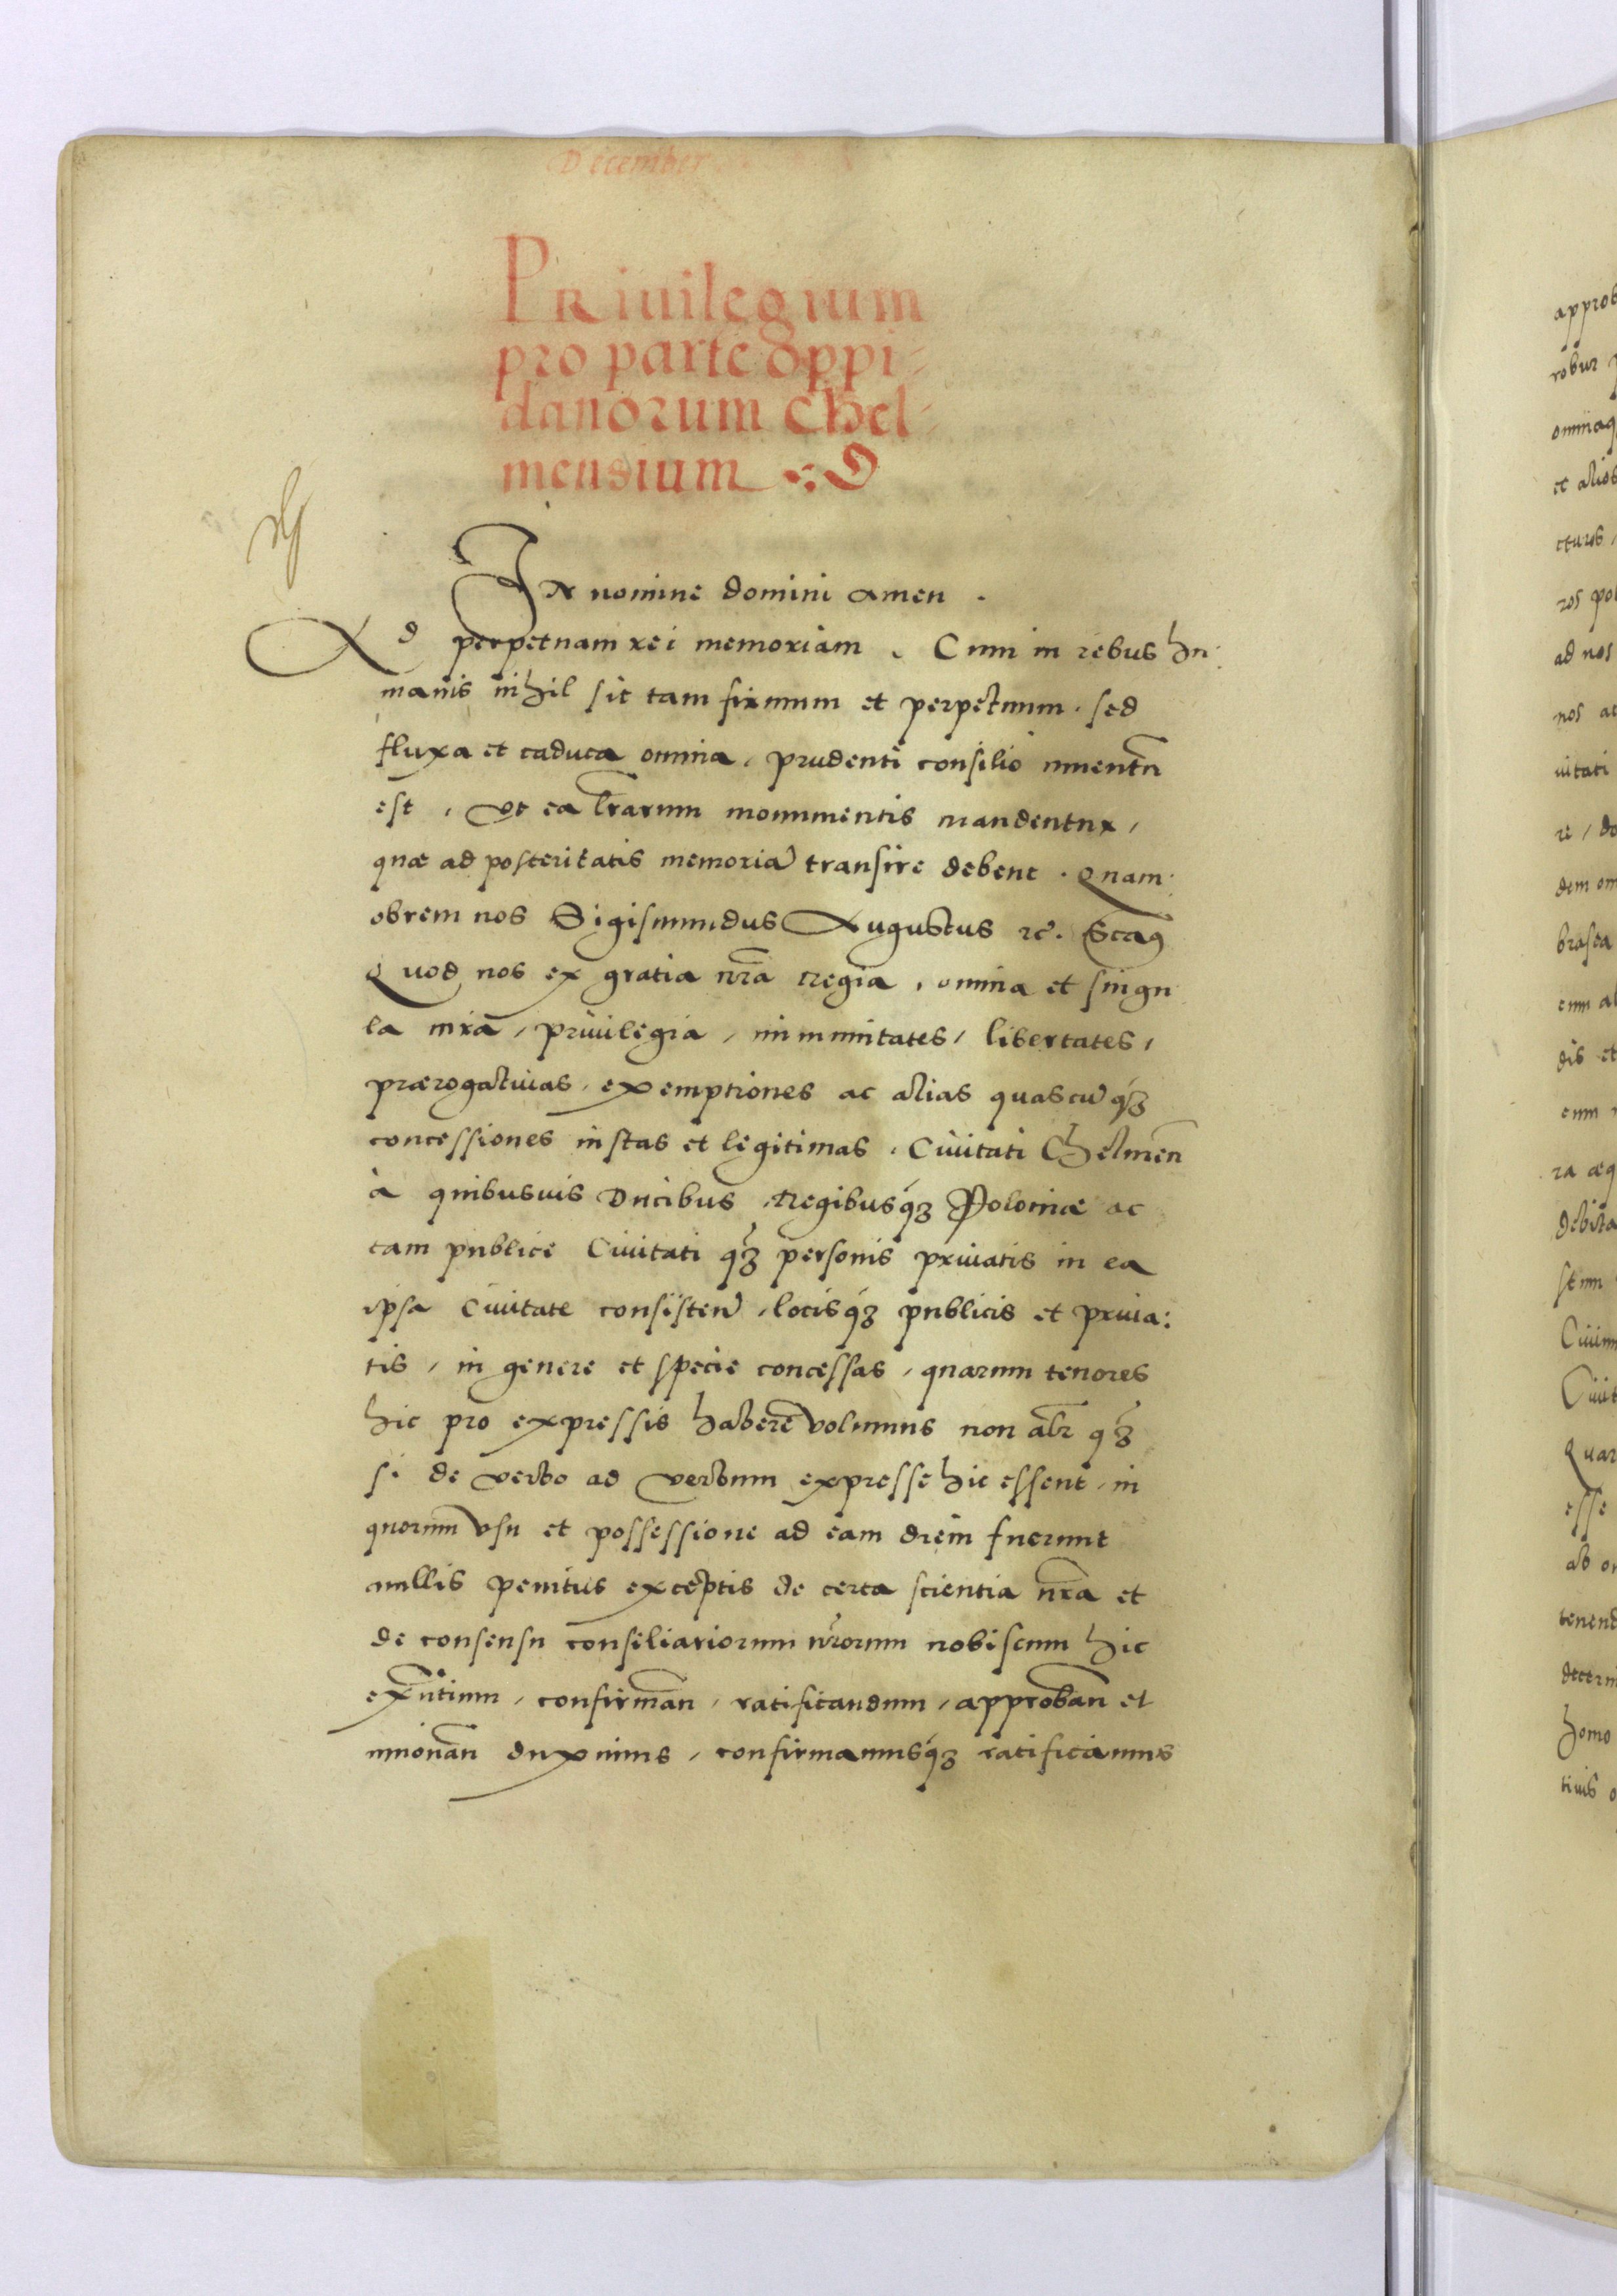 December
PRiuilegium
pro parte oppi-
danorum Chel-
mensium
In nomine domini amen .
Ad perpetuam rei memoriam . Cum in rebus hu:
manis nihil sit tam firmum et perpetuum . sed
fluxa et caduca omnia , prudenti consilio inuentũ
est , Vt ea l̃rarum monumentis mandentur ,
quæ ad posteritatis memoriã transire debent . Quam:
obrem nos Sigismundus Augustus
Quod nos ex gratia nr̃a regia , omnia et singu
la iura , priuilegia , immunitates , libertates ,
prærogatiuas , exemptiones ac alias quascũq3
concessiones iustas et legitimas . Ciuitati Chelmeñ
à quibusuis Ducibus , Regibusq3 Poloniæ ac
tam publice Ciuitati q̃3 personis priuatis in ea
ipsa Ciuitate consisteñ , locisq3 publicis et priua:
tis , in genere et specie concessas , quarum tenores
hic pro expressis haberẽ volumus non alr̃ q̃3
si de verbo ad verbum expresse hic essent , in
quorum vsu et possessione ad eam diem fuerunt
nullis penitus exceptis de certa scientia nr̃a et
de consensu consiliariorum nr̃orum nobiscum hic
ex̃ntium , confirmañ , ratificandum , approbañ et
innouañ duximus , confirmamusq3 ratificamus
approb
robur
omniaq
et alios
cturos ,
ros pol
ad nos
nos at
uitati
re , do
dem om
brasca
eum al
dis et
eum
ra æq
debita
Ciuit
Quar
esse
ab
tenend
decern
homo
tiuis